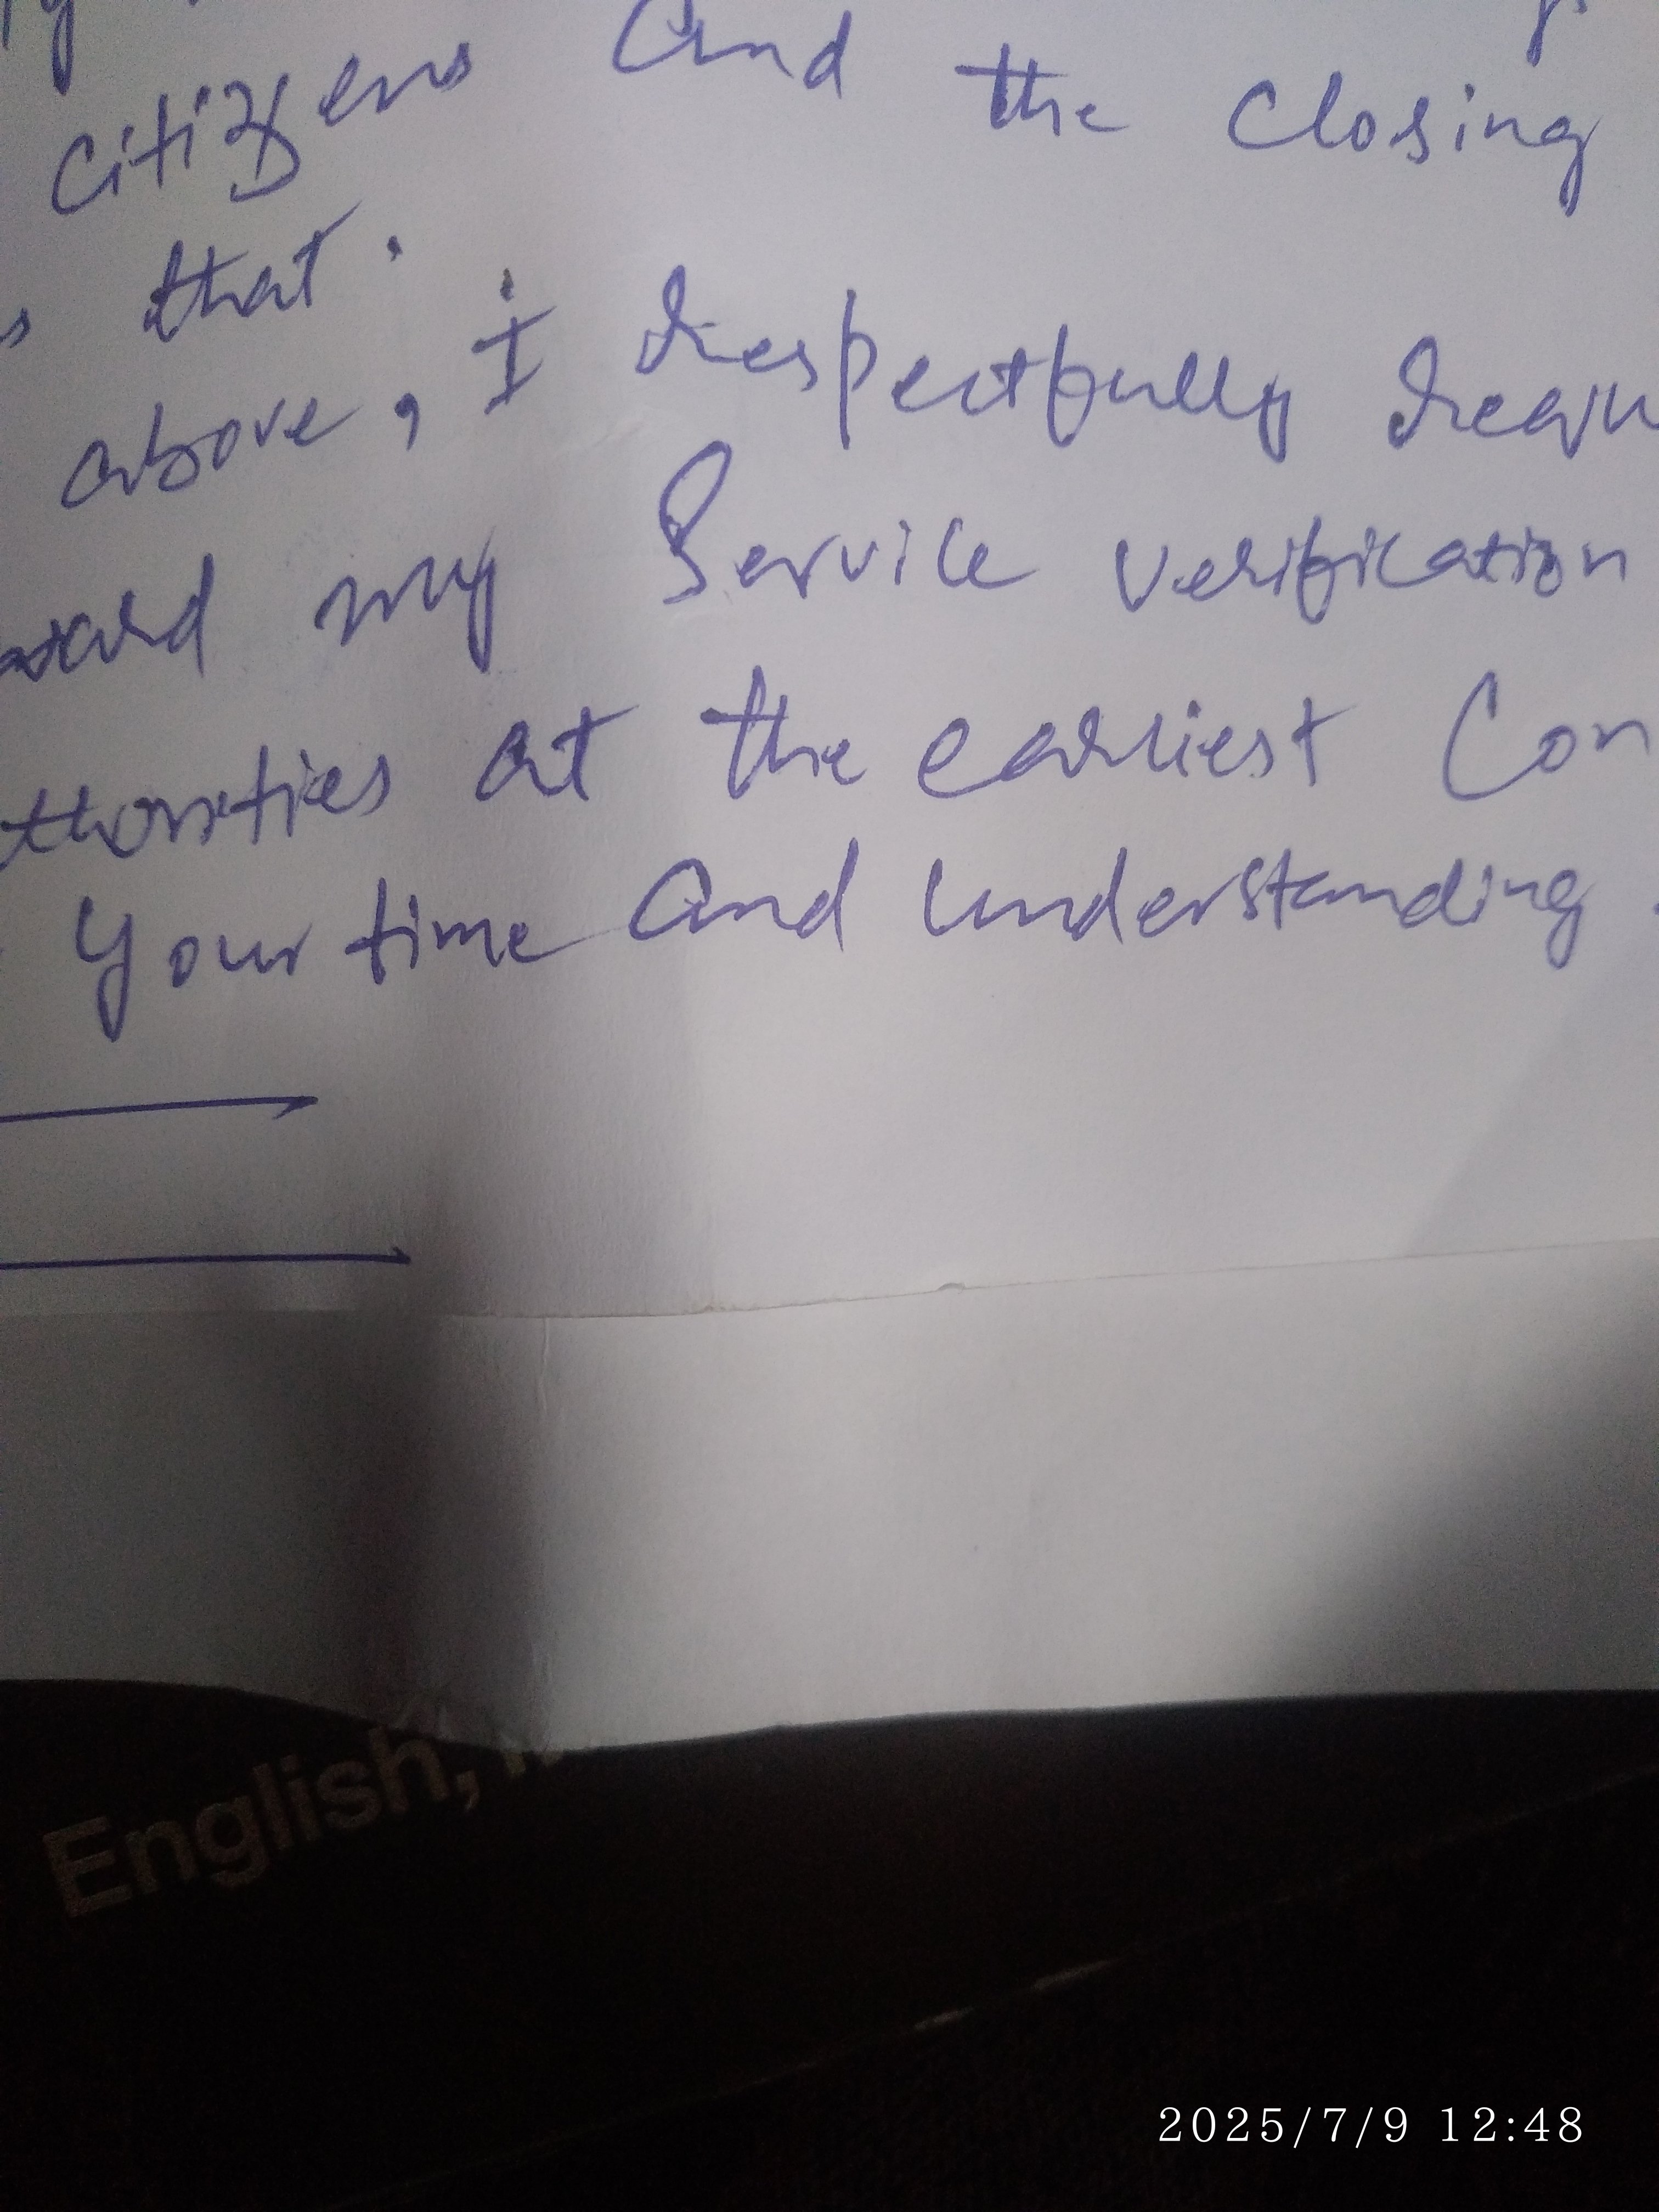 citizens and the closing
s that.
above, I respectfully requ
ward my Service verification
thorities at the earliest Con
your time and understanding.
English,
2025/7/9 12:48